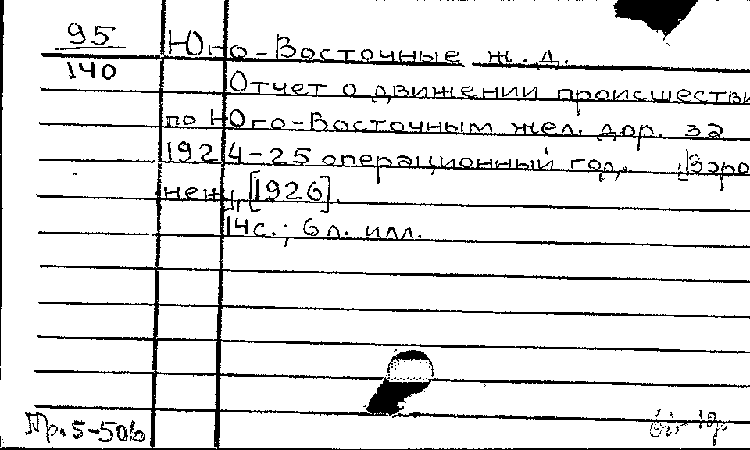 95
140
Юго-Восточные ж. д.
Отчет о движении происшестви
по Юго-Восточным жел. дор. за
1924-25 операционный год. [Воро
неж, [1926].
14с.; 6л. илл.
Пр. 5-506